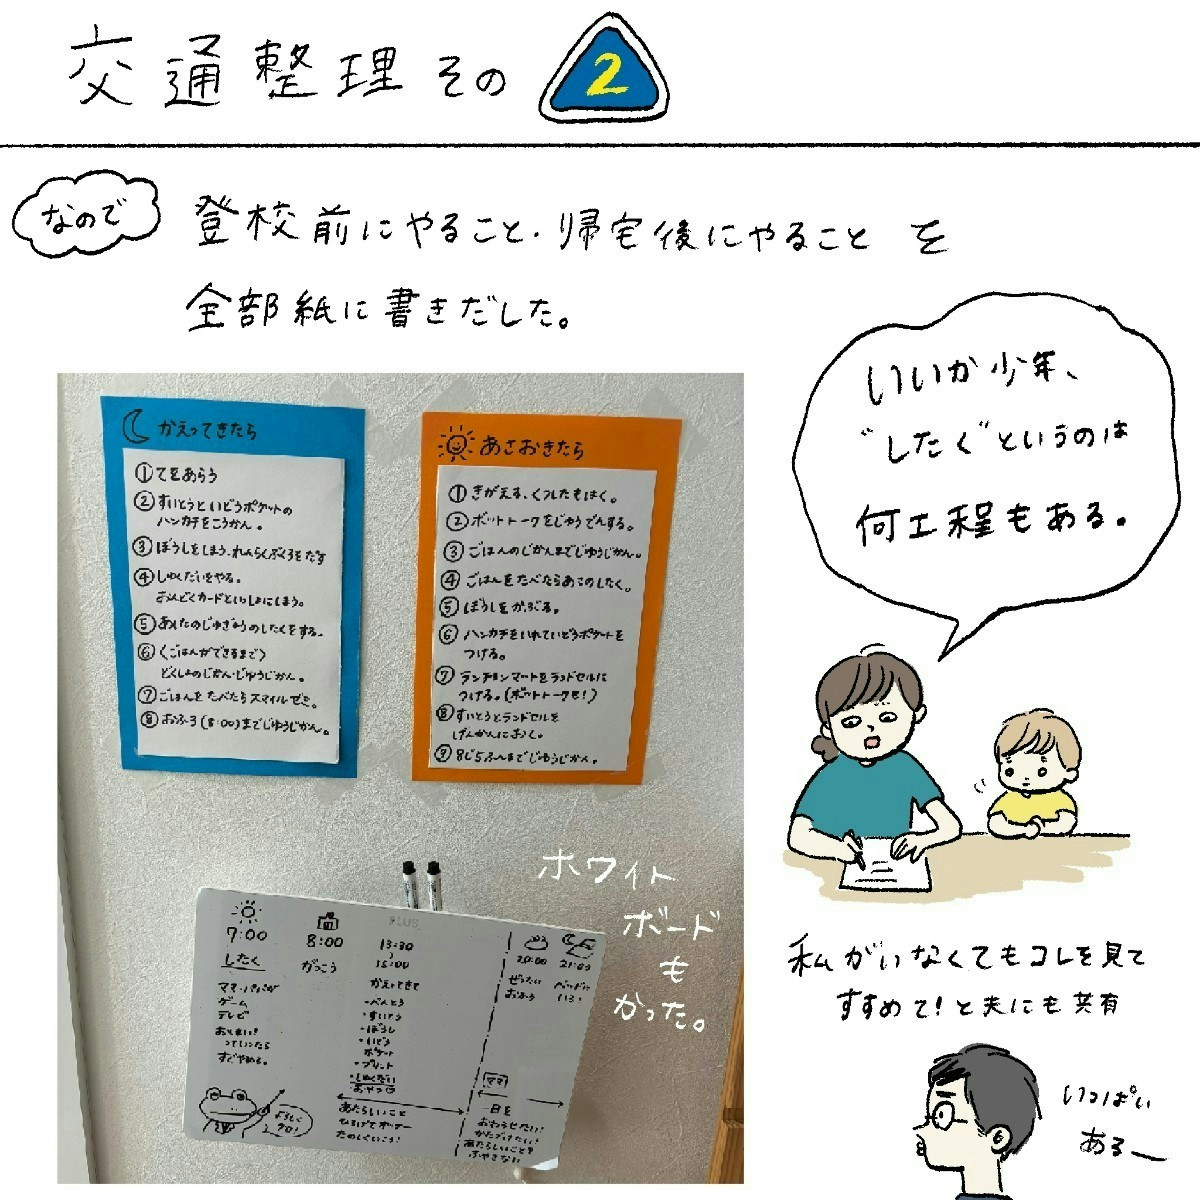 交通整理その 2
なので
登校前にやること・帰宅後にやること を
全部紙に書きだした。
いいか少年、
"したく"というのは
何工程もある。
かえってきたら
①てをあらう
②すいとうといどうポケットの
ハンカチをこうかん。
③ぼうしをしまう、れんらくぶくろをだす
④しゅくだいをやる。
おんどくカードといっしょにしまう。
⑤あしたのじゅぎょうのしたくをする。
⑥(ごはんができるまで)
どくしょのじかん・じゆうじかん。
⑦ごはんをたべたらスマイルゼミ。
⑧おふろ(8:00)までじゆうじかん。
あさおきたら
①きがえる、くつしたもはく。
②ボットトークをじゅうでんする。
③ごはんのじかんまでじゆうじかん。
④ごはんをたべたらあさのしたく。
⑤ぼうしをかぶる。
⑥ハンカチをいれていどうポケットを
つける。
⑦ランチョンマットをランドセルに
つける。(ボットトークも!)
⑧すいとうとランドセルを
げんかんにおく。
⑨8じ5ふんまでじゆうじかん。
ホワイト
ボード
も
かった。
PLUS
7:00
したく
ママ・パパが
ゲーム
テレビ
おしまい!
っていったら
すぐやめる。
よろしく
ケロ!
8:00
がっこう
13:30
15:00
かえってきて
・べんとう
・すいとう
・ぼうし
・いどう
ポケット
・プリント
・しゅくだい
おやつ
あたらしいこと
たのしくいこう!
20:00
ぜったい
おふろ
21:00
ベッドに
いる!
ママ
一日を
おわらせたい!
かたづけたい!
あたらしいことを
ふやさない
私がいなくてもコレを見て
すすめて!と夫にも共有
いっぱい
あるー